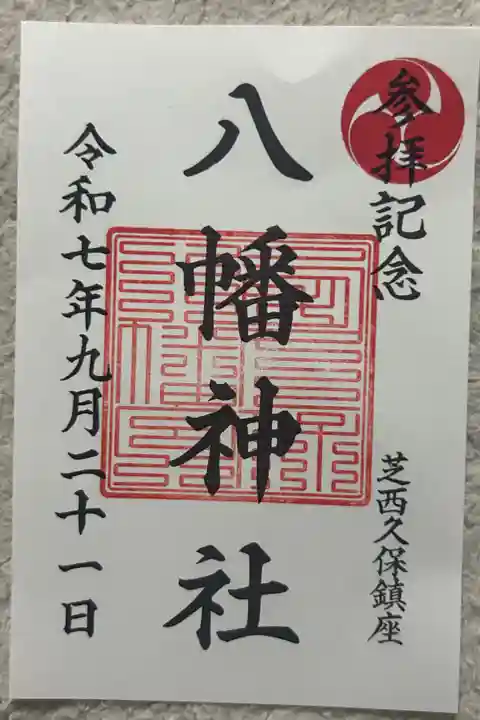 参拝記念
芝西久保鎮座
八幡神社
令和七年九月二十一日